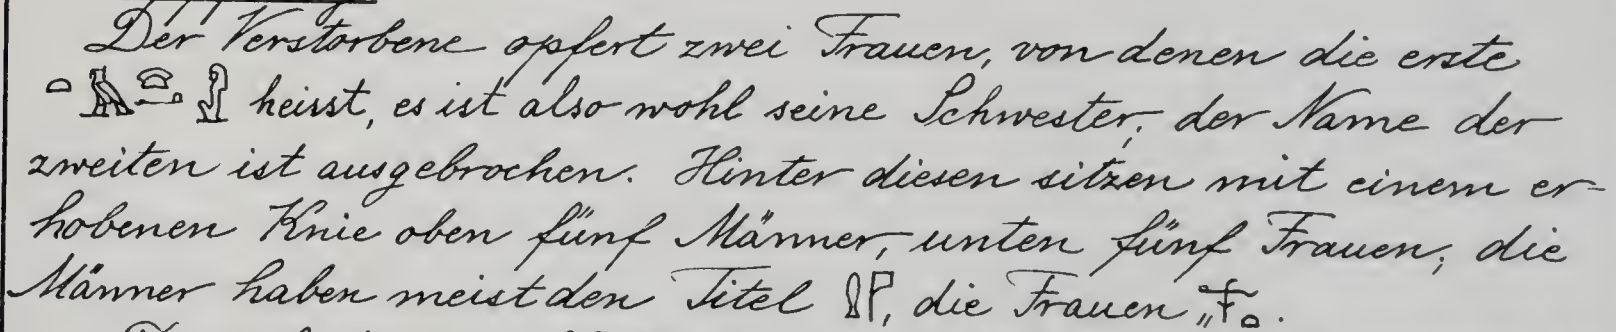 Der Verstorbene opfert zwei Frauen, von denen die erste
heisst, es ist also wohl seine Schwester, der Name der
zweiten ist ausgebrochen. Hinter diesen sitzen mit einem er-
hobenen Knie oben fünf Männer, unten fünf Frauen; die
Männer haben meist den Titel , die Frauen .